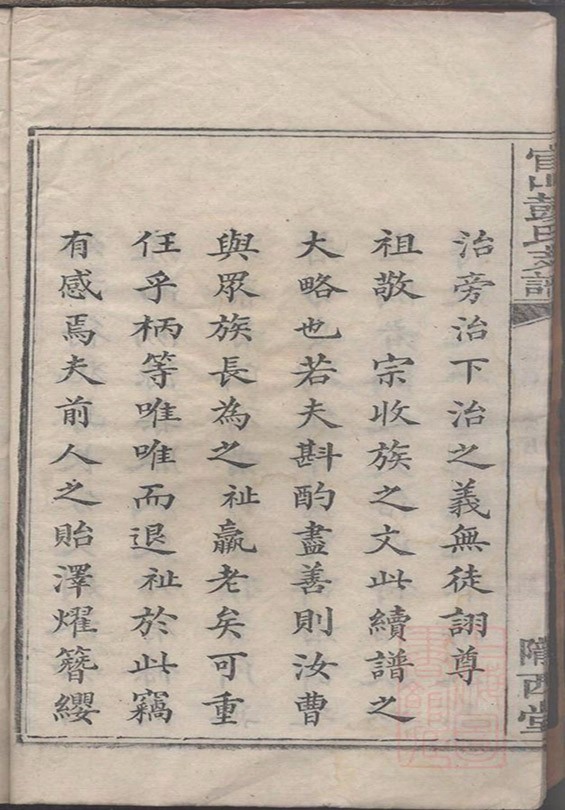 官山彭氏支譜
隴西堂
治旁治下治之義無徒詡尊
祖敬 宗收族之文此續譜之
大略也若夫斟酌盡善則汝曹
與眾族長為之祉羸老矣可重
任乎柄等唯唯而退祉於此竊
有感焉夫前人之貽澤燿簪纓